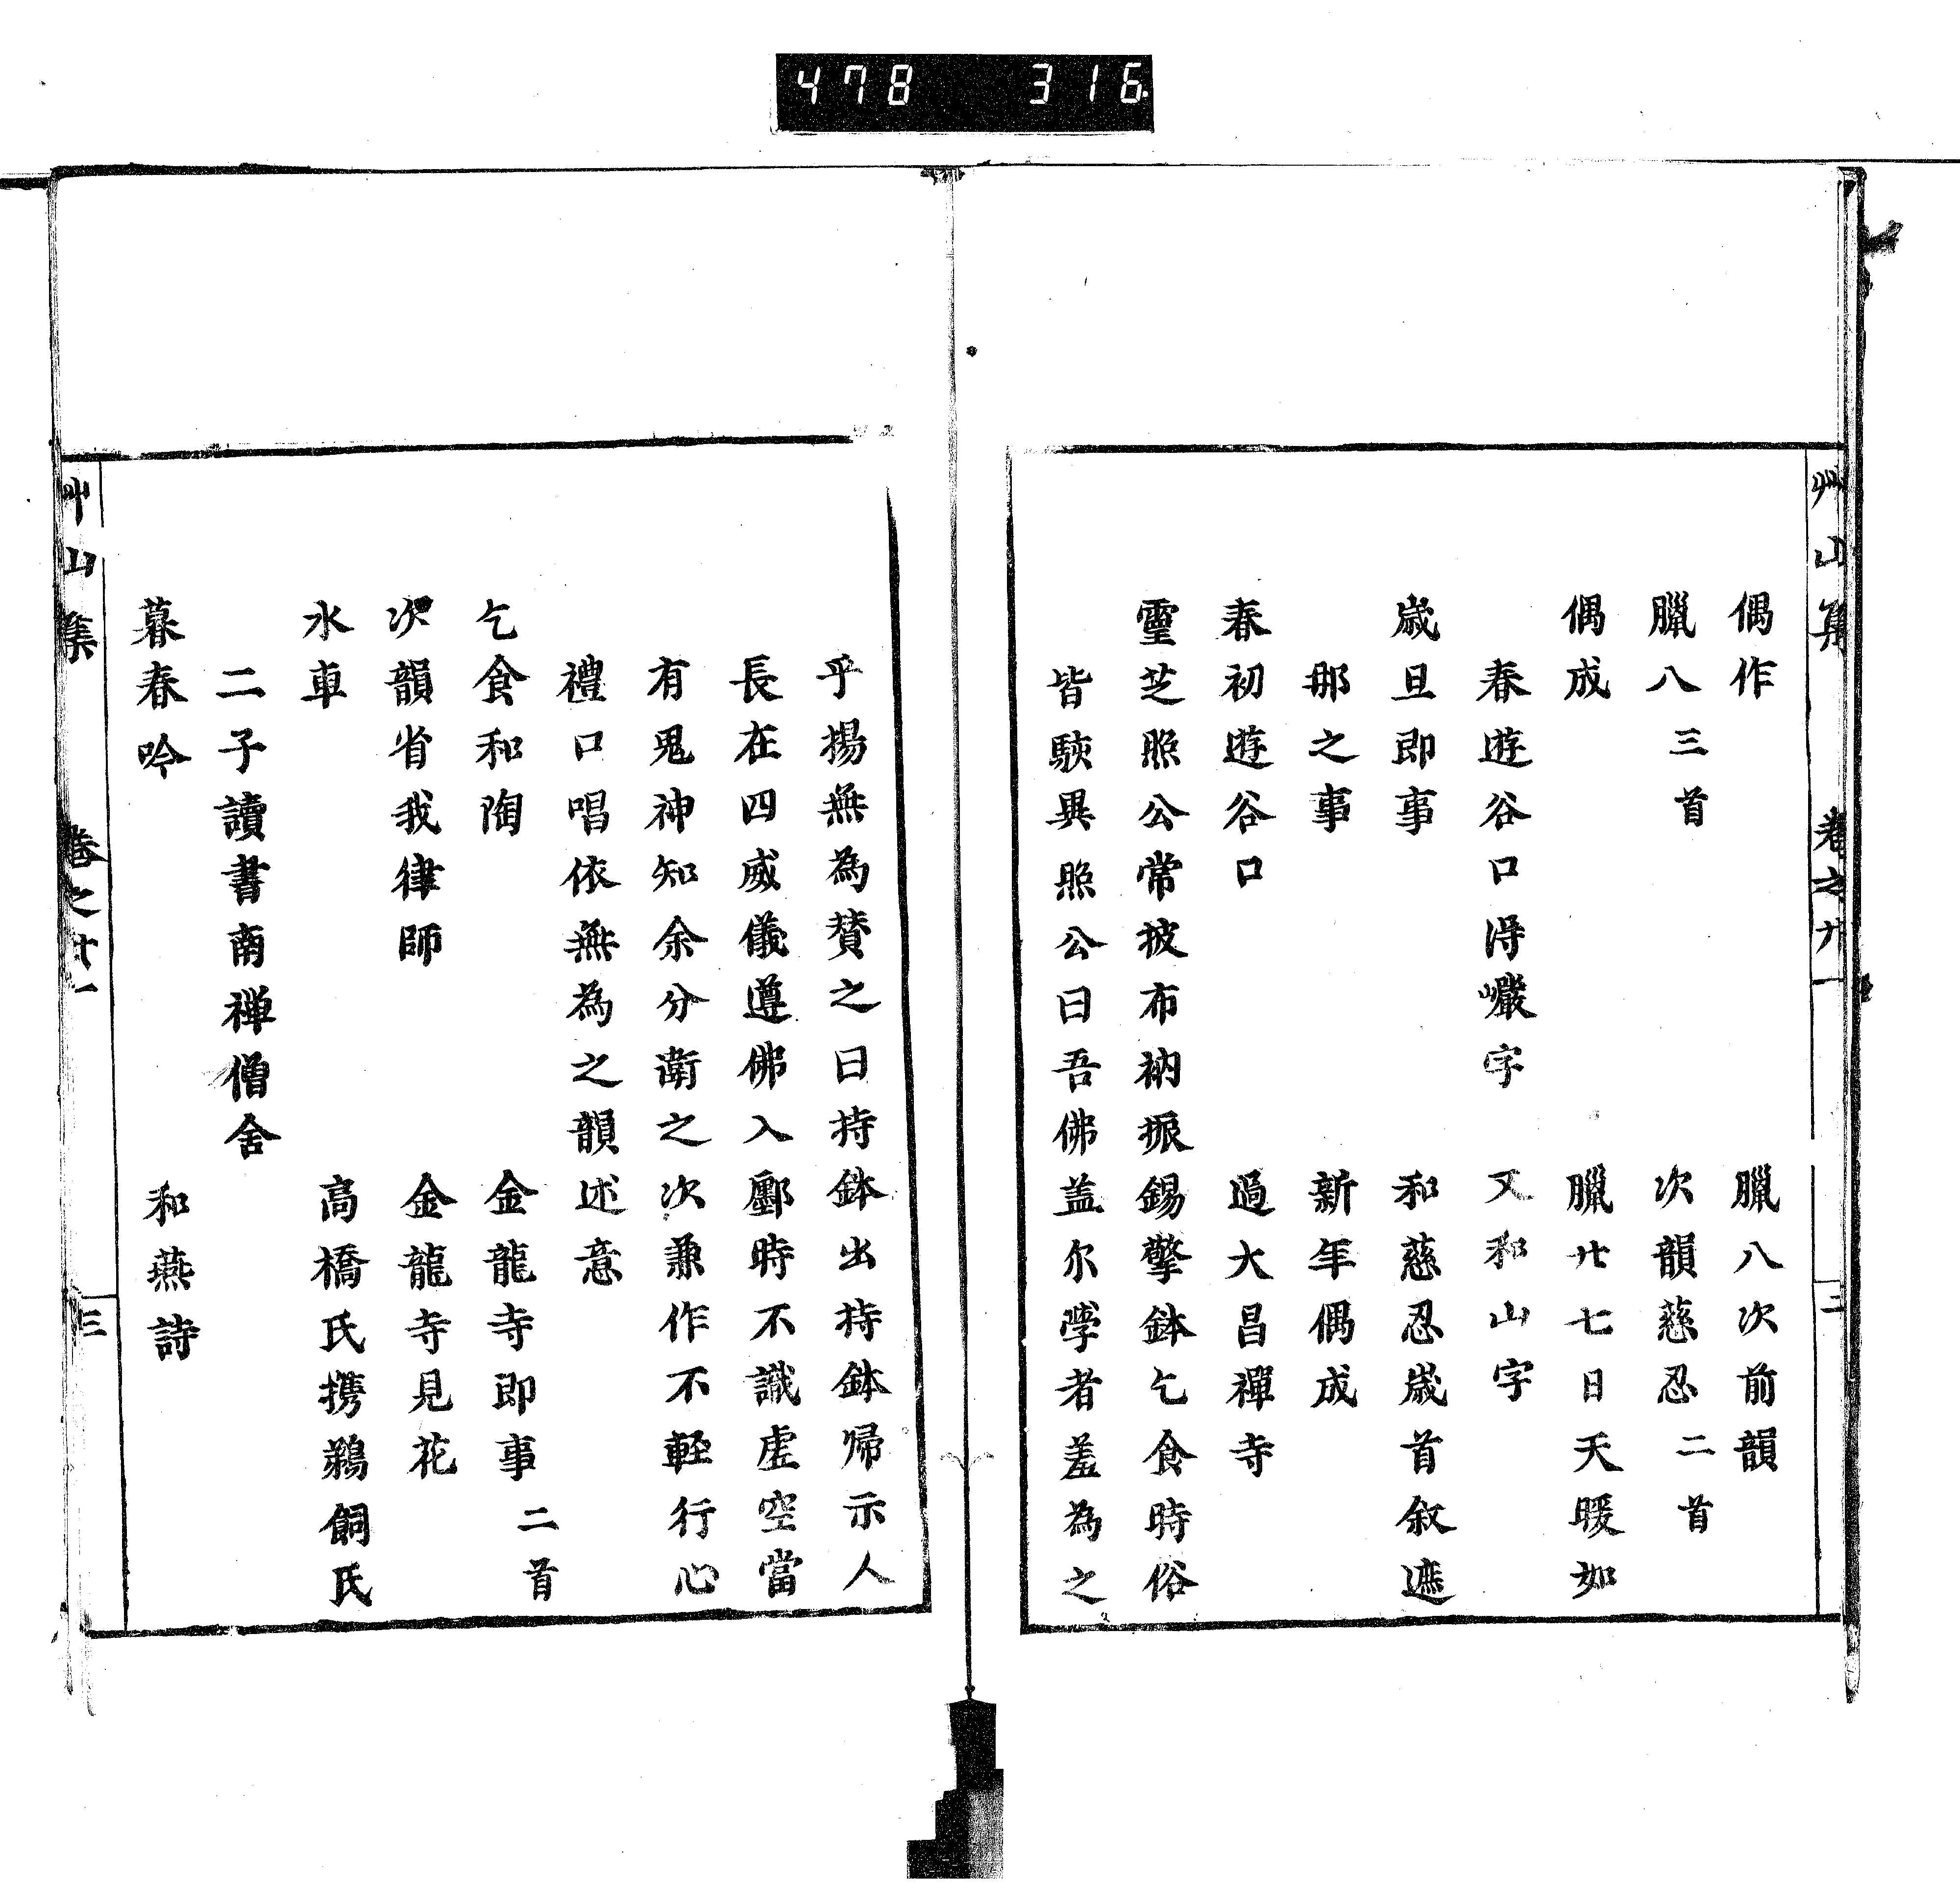 478 316
艸山集 卷之廿一 二
偶作 臘八次前韻
臘八三首 次韻慈忍二首
偶成 臘廿七日天暖如
春遊谷口得巖字 又和山字
歳旦即事 和慈忍歳首叙遮
那之事 新年偶成
春初遊谷口 過大昌禪寺
靈芝照公常披布衲振錫擎鉢乞食時俗
皆駭異照公曰吾佛蓋尔學者羞為之
乎揚無為賛之曰持鉢出持鉢帰示人
長在四威儀遵佛入鄽時不識虚空當
有鬼神知余分衛之次兼作不輕行心
禮口唱依無為之韻述意
乞食和陶 金龍寺即事二首
次韻省我律師 金龍寺見花
水車 高橋氏携鵜飼氏
二子讀書南禅僧舍
暮春吟 和燕詩
艸山集 卷之廿一 三